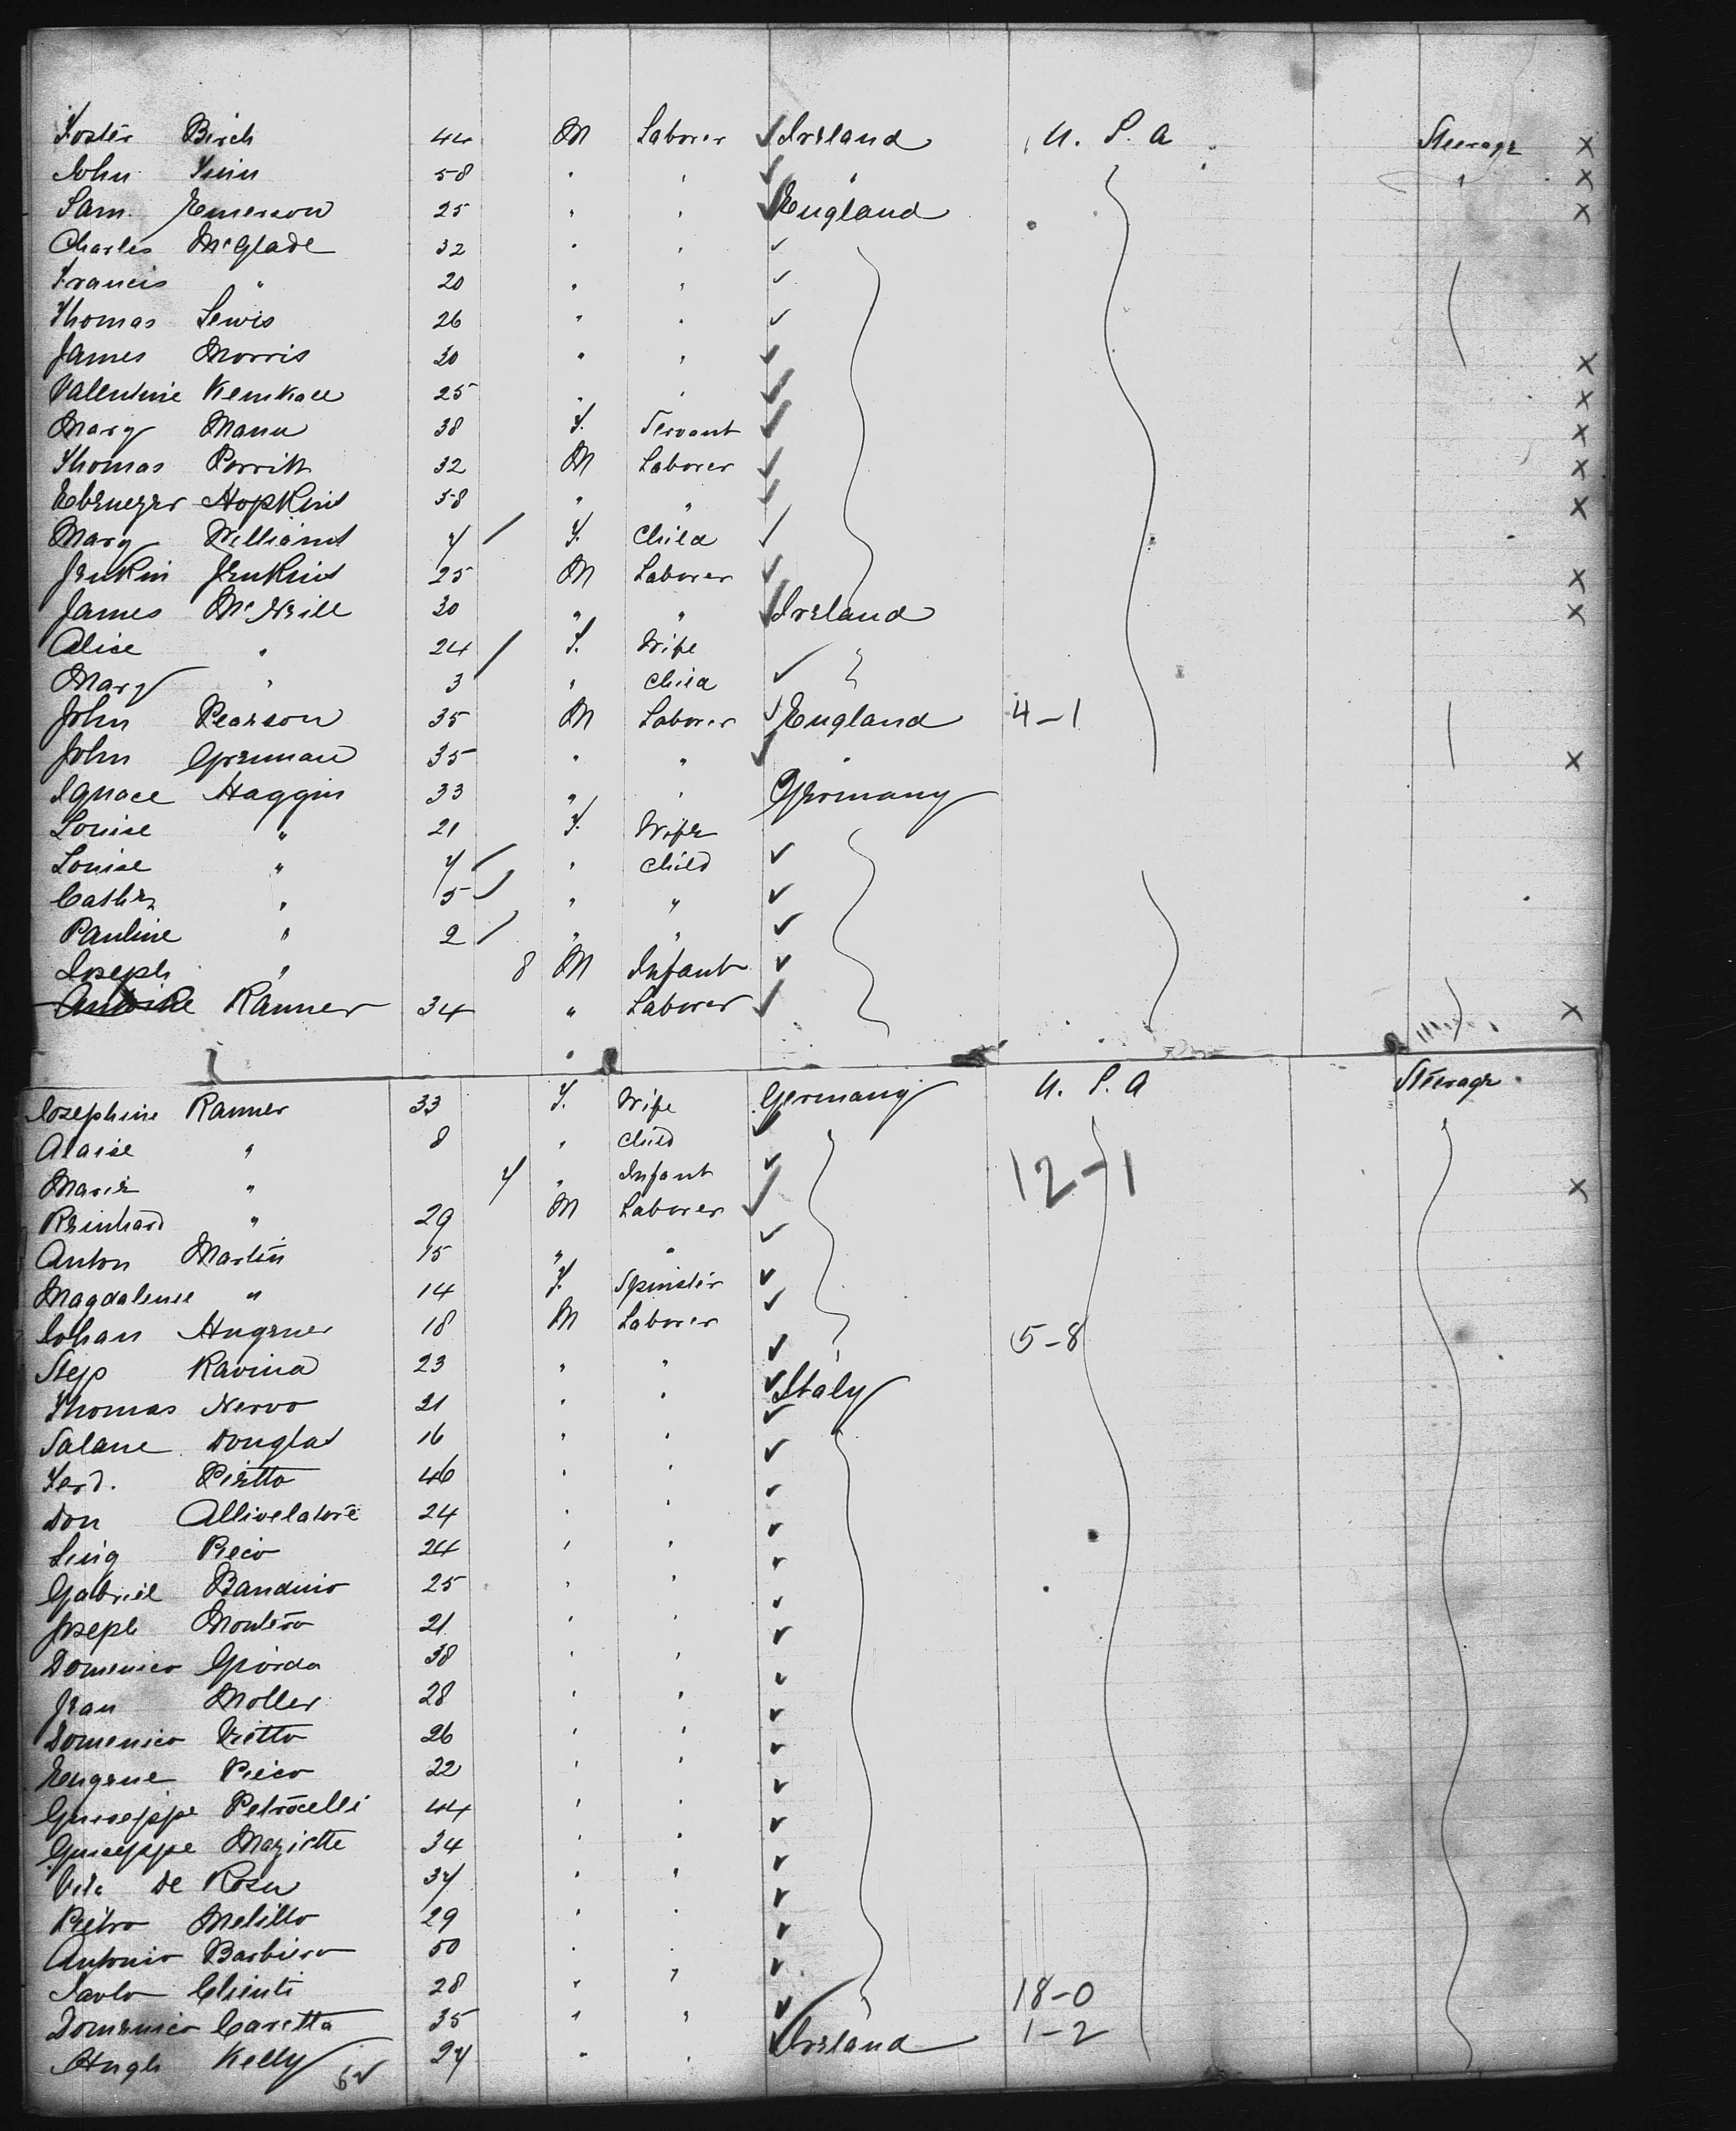 Foster Birch 44 M Laborer Ireland U. S. A Steerage X
John Finn 58 " " " " X
Sam. Emerson 25 " " England X
Charles McGlade 32 " "
Francis " 20 " "
Thomas Lewis 26 " "
James Morris 30 " " X
Vallentine 25 " " X
Mary Mann 38 F. Servant X
Thomas Porritt 32 M Laborer X
Ebenezer Hopkins 58 " " X
Mary Williams 7 F. Child
Jenkin Jenkins 25 M Laborer X
James McNeill 30 " " Ireland X
Alice " 24 F. Wife
Mary " 3 " Child
John Pearson 35 M Laborer England 4-1
John Grennan 35 " " " X
Ignace Haggin 33 " " Germany
Louise " 21 F. Wife
Louise " 7 " Child
Cathe " 5 " "
Pauline " 2 " "
Joseph " 8 M Infant
Antoine Ranner 34 " Laborer X
Josephine Ranner 33 F. Wife Germany U. S. A Steerage
Aloise " 8 " Child
Marie " 7 " Infant 12-1 X
Reinhard " 29 M Laborer
Anton Martin 15 " "
Magdalene " 14 F. Spinster
Johan Hugener 18 M Laborer 5-8
Step Ravina 23 " " Italy
Thomas Nervo 21 " "
Salane Douglas 16 " "
Ferd. Pietto 46 " "
Don Allivelatore 24 " "
Luig Picco 24 " "
Gabriel Banduio 25 " "
Joseph Montero 21 " "
Domenico Giorda 38 " "
Jean Moller 28 " "
Domenico Vietto 26 " "
Eugene Picco 22 " "
Guiseppe Petrocelli 44 " "
Guiseppe Maziette 34 " "
Vito De Rosa 37 " "
Pietro Melillo 29 " "
Antonio Barbiero 50 " "
Paolo Clienti 28 " " 18-0
Domenico Caretta 35 " " 1-2
Hugh Kelly 27 " " Ireland